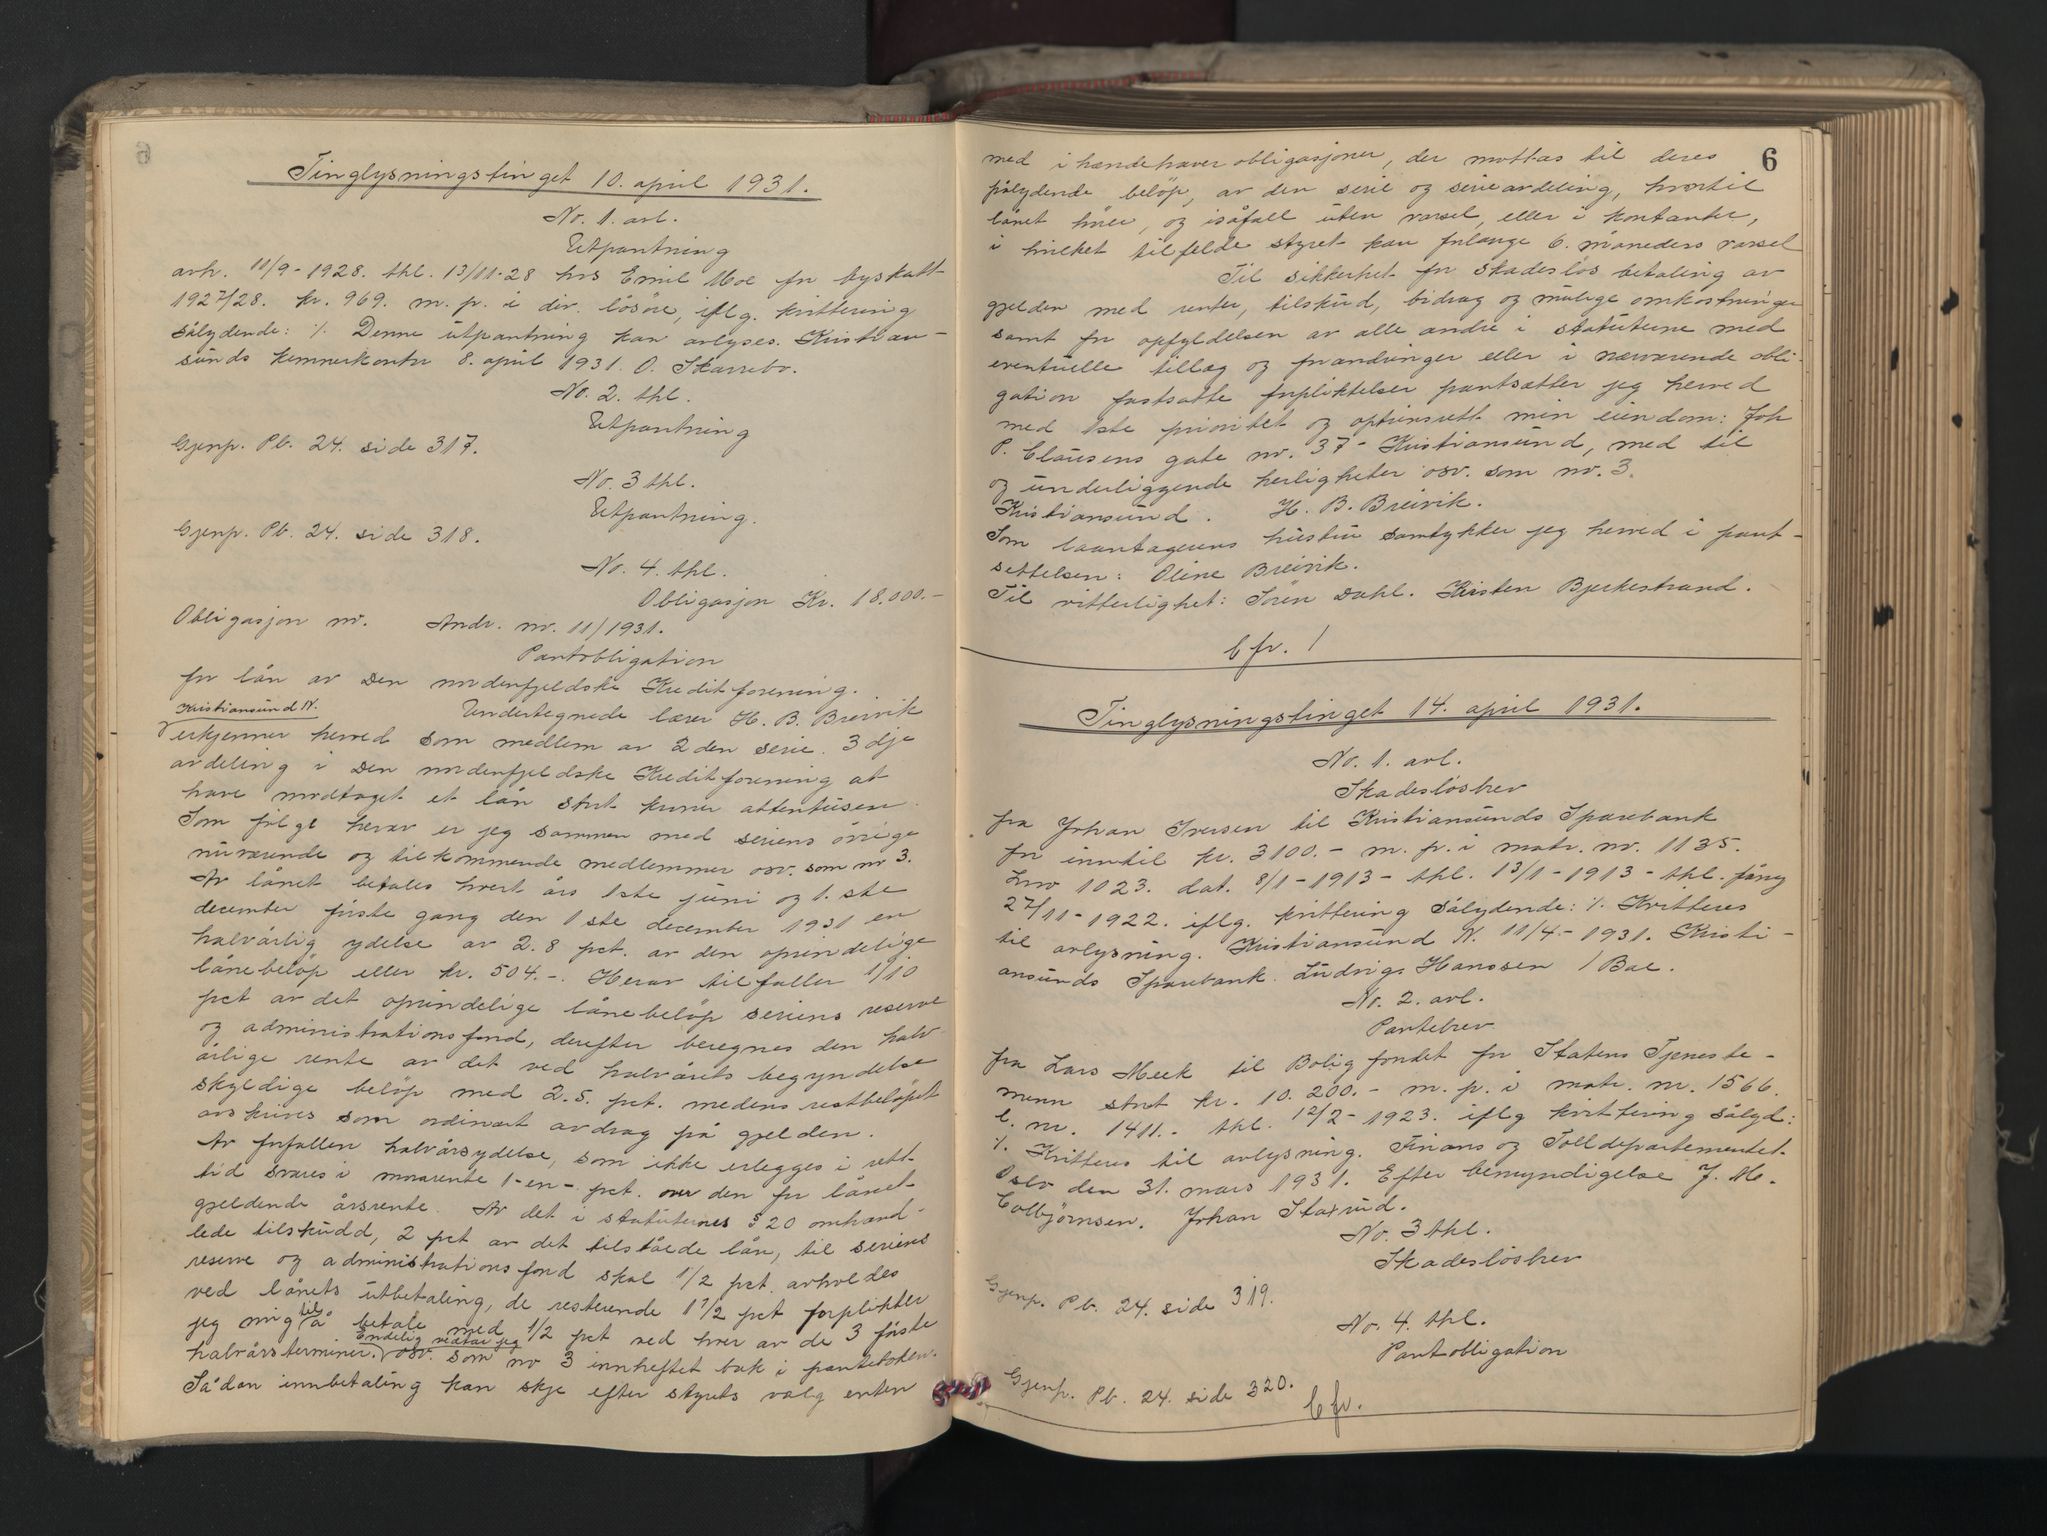 Tinglysningstinget 10. april 1931.
No. 1. avl.
Utpantning
avh. 11/9 - 1928. thl. 13/11-28 hos Emil Moe for byskatt
1927/28. kr. 969. m. p. i div. lösöre, iflg. kvittering
sålydende: ٪. Denne utpantning kan avlyses. Kristian-
sunds kemnerkontor 8. april 1931. O. Skarrebo.
No. 2. thl.
Utpantning
Gjenp. Pb. 24. side 317.
No. 3 thl.
Utpantning.
Gjenp. Pb. 24. side 318.
No. 4. thl.
Obligasjon Kr. 18.000.-
Obligasjon nr. Andr. nr. 11/1931.
Pantobligation
for lån av Den nordenfjeldske Kreditforening.
Kristiansund N. Undertegnede lærer H. B. Breivik
erkjenner herved som medlem av 2den serie. 3dje
avdeling i Den nordenfjeldske Kreditforening at
have modtaget et lån stort kroner attentusen.
Som följe herav er jeg sammen med seriens övrige
nuværende og tilkommende medlemmer osv. som nr 3.
Av lånet betales hvert års 1ste juni og 1.ste
december förste gang den 1ste december 1931 en
halvårlig ydelse av 2.8 pct. av den oprindelige
lånebelöp eller kr. 504.-. Herav tilfaller 1/10
pct av det oprindelige lånebelöp seriens reserve
og administrationsfond, derefter beregnes den halv-
årlige rente av det ved halvårets begyndelse
skyldige belöp med 2.5. pct. medens restbelöpet
avskrives som ordinært avdrag på gjelden.
Av forfallen halvårsydelse, som ikke erlegges i rett
tid svares i morarente 1-en- pct. over den for lånet
gjeldende årsrente. Av det i statuternes § 20 omhand-
lede tilskudd, 2 pct av det tilståede lån, til seriens
reserve og administrationsfond skal 1/2 pct. avholdes
ved lånets utbetaling, de resterende 1 1/2 pct forplikter
jeg mig til å betale med 1/2 pct ved hver av de 3 förste
halvårsterminer. Endelig vedtar jeg osv. som nr 3 innheftet bak i panteboken.
Sådan innbetaling kan skje efter styrets valg enten
6
med ihændehaverobligasjoner, der mottas til deres
pålydende belöp, av den serie og serieavdeling, hvortil
lånet hörer, og isåfall uten varsel, eller i kontanter,
i hvilket tilfelde styret kan forlange 6. måneders varsel
Til sikkerhet for skadeslös betaling av
gjelden med renter, tilskud, bidrag og mulige omkostninger
samt for opfyldelsen av alle andre i statuterne med
eventuelle tillæg og forandringer eller i nærværende obli-
gation fastsatte forpliktelser pantsætter jeg herved
med 1ste prioritet og optrinsrett min eiendom: Joh
P. Clausens gate nr. 37 - Kristiansund, med til
og underliggende herligheter osv. som nr. 3.
Kristiansund. H. B. Breivik.
Som laantagerens hustru samtykker jeg herved i pant-
settelsen: Oline Breivik.
Til vitterlighet: Sören Dahl. Kirsten Bjerkestrand.
Cfr. /
Tinglysningstinget 14. april 1931.
No. 1. avl.
Skadeslösbrev
fra Johan Iversen til Kristiansunds Sparebank
for inntil kr. 3100.- m. p. i matr. nr. 1135.
Lnr 1023. dat. 8/1 - 1913 - thl. 13/1 - 1913 - thl. påny
27/11 - 1922. iflg. kvittering sålydende: ٪. Kvitteres
til avlysning. Kristiansund N. 11/4 - 1931. Kristi-
ansunds Sparebank. Ludvig Hanssen / Bae.
No. 2. avl.
Pantebrev
fra Lars Meek til Boligfondet for Statens Tjeneste-
menn stort kr. 10.200.- m. p. i matr. nr. 1566.
l. nr. 1411.- thl. 12/2 - 1923. iflg kvittering sålyd:
٪. Kvitteres til avlysning. Finans og Tolldepartementet
Oslo den 31. mars 1931. Efter bemyndigelse J. M.
Colbjørnsen. Johan Staxrud.
No. 3 thl.
Skadeslösbrev
Gjenp. Pb. 24. side 319.
No. 4. thl.
Pantobligation
Gjenp. Pb. 24. side 320.
Cfr.